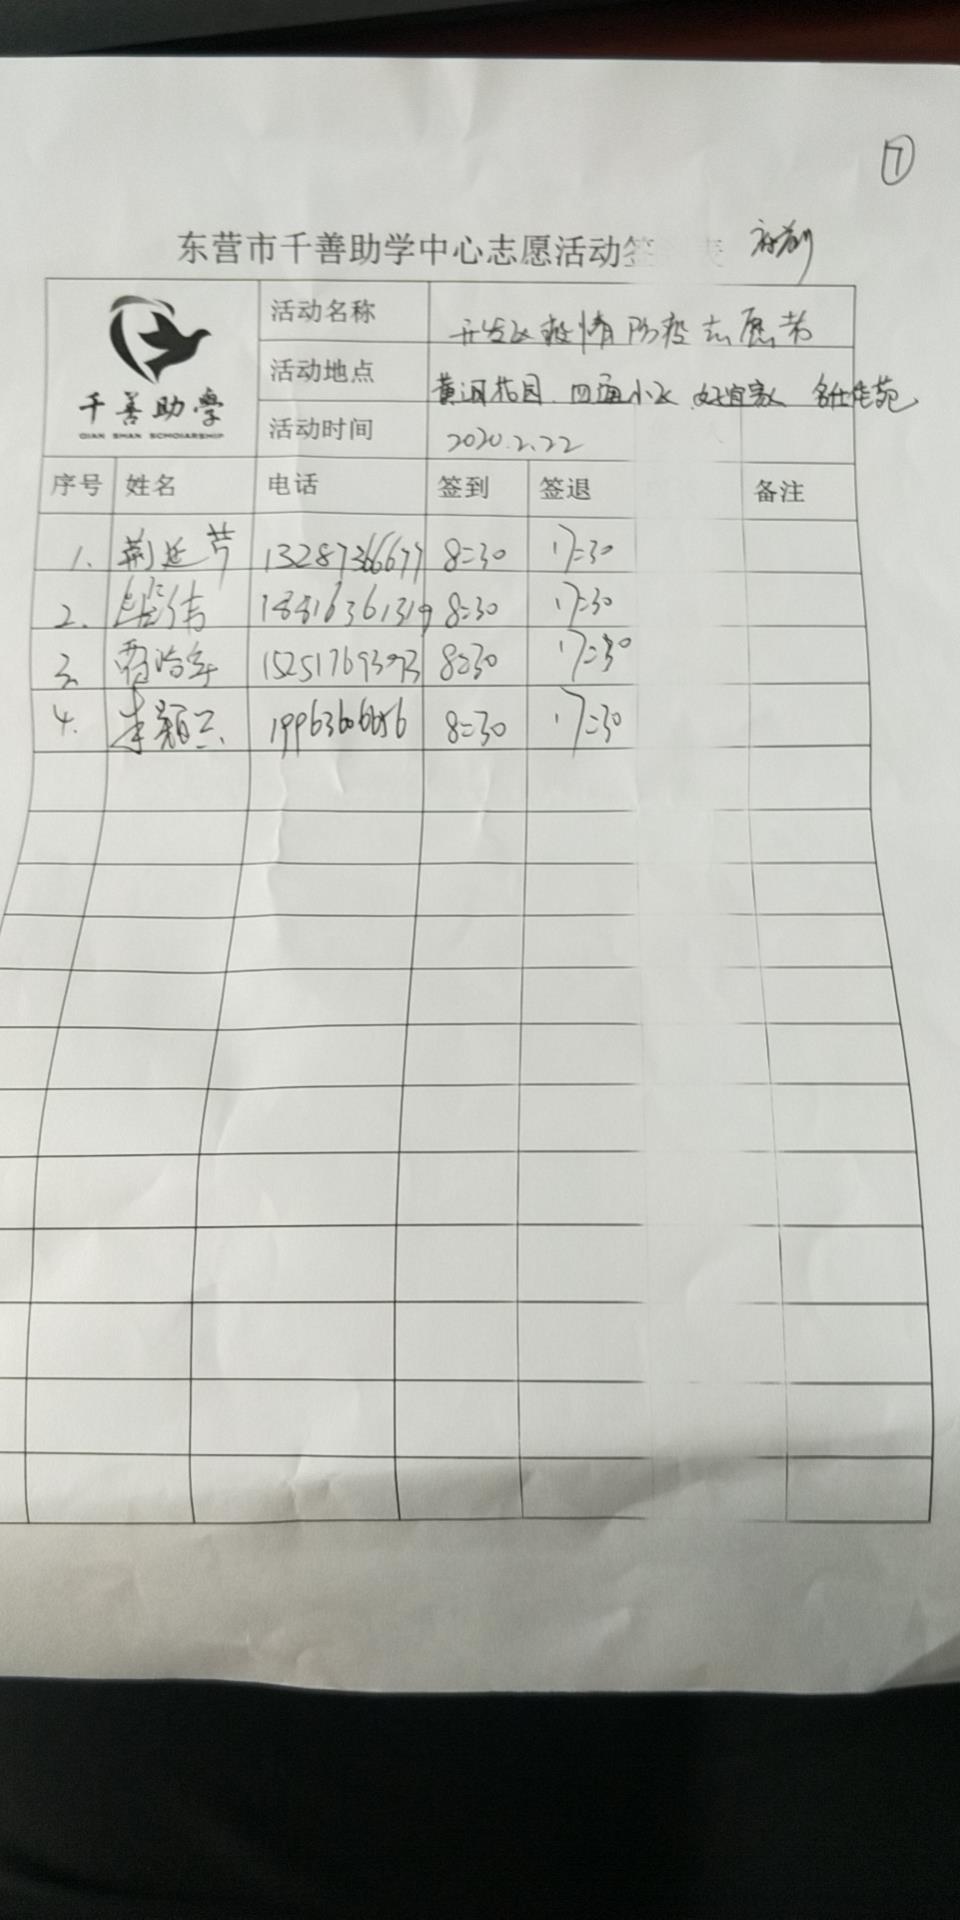 ⑦
东营市千善助学中心志愿活动签 表
千善助学
QIAN SHAN SCHOLARSHIP
活动名称 开发区疫情防疫志愿者
活动地点 黄河花园 四通小区 好宜家 名仕佳苑
活动时间 2020.2.22
序号 姓名 电话 签到 签退 备注
1. 荆延芹 13287366677 8:30 17:30
2. 伟 18816361319 8:30 17:30
3. 15251769393 8:30 17:30
4. 李颖 19963606656 8:30 17:30